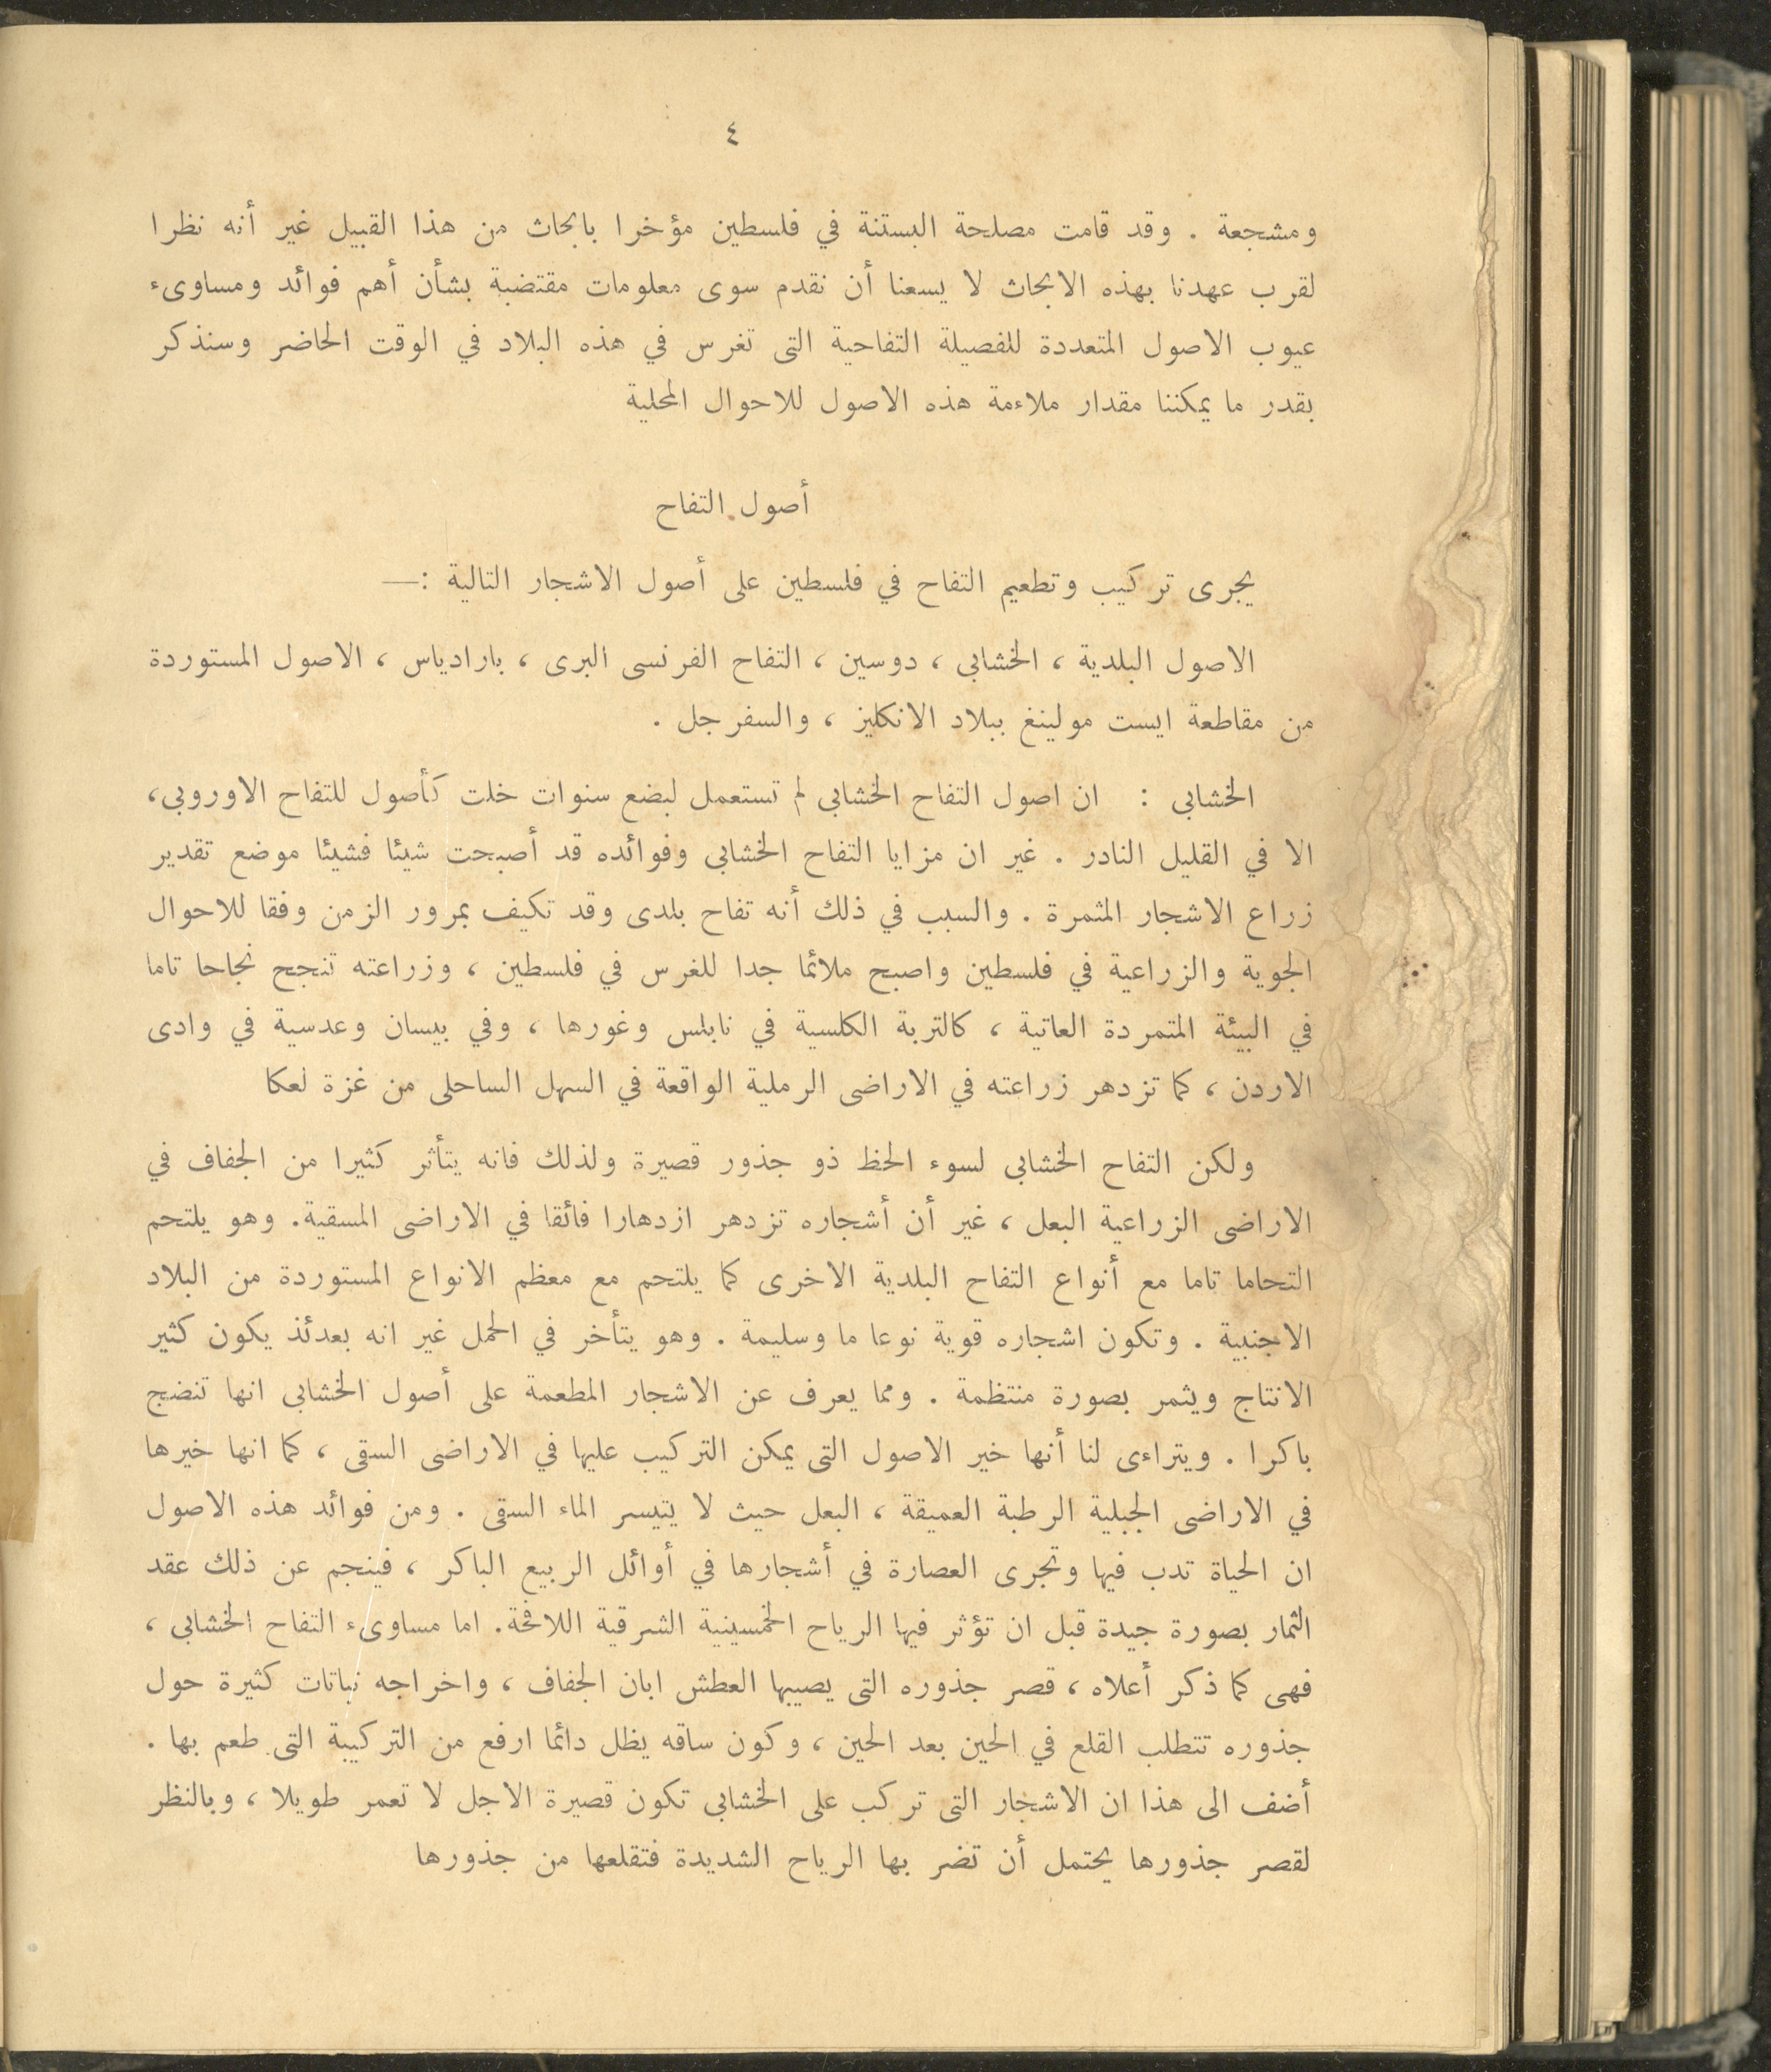 ٤
ومشجعة . وقد قامت مصلحة البستنة في فلسطين مؤخرا بابحاث من هذا القبيل غير أنه نظرا
لقرب عهدنا بهذه الابحاث لا يسعنا أن نقدم سوى معلومات مقتضبة بشأن أهم فوائد ومساوىء
عيوب الاصول المتعددة للفصيلة التفاحية التى تغرس في هذه البلاد في الوقت الحاضر وسنذكر
بقدر ما يمكننا مقدار ملاءمة هذه الاصول للاحوال المحلية
أصول التفاح
يجرى تركيب وتطعيم التفاح في فلسطين على أصول الاشجار التالية :—
الاصول البلدية ، الخشابى ، دوسين ، التفاح الفرنسى البرى ، بارادياس ، الاصول المستوردة
من مقاطعة ايست مولينغ ببلاد الانكليز ، والسفرجل .
الخشابى : ان اصول التفاح الخشابى لم تستعمل لبضع سنوات خلت كأصول للتفاح الاوروبي،
الا في القليل النادر . غير ان مزايا التفاح الخشابى وفوائده قد أصبحت شيئا فشيئا موضع تقدير
زراع الاشجار المثمرة . والسبب في ذلك أنه تفاح بلدى وقد تكيف بمرور الزمن وفقا للاحوال
الجوية والزراعية في فلسطين واصبح ملائما جدا للغرس في فلسطين ، وزراعته تنجح نجاحا تاما
في البيئة المتمردة العاتية ، كالتربة الكلسية في نابلس وغورها ، وفي بيسان وعدسية في وادى
الاردن ، كما تزدهر زراعته في الاراضى الرملية الواقعة في السهل الساحلى من غزة لعكا
ولكن التفاح الخشابى لسوء الحظ ذو جذور قصيرة ولذلك فانه يتأثر كثيرا من الجفاف في
الاراضى الزراعية البعل ، غير أن أشجاره تزدهر ازدهارا فائقا في الاراضى المسقية. وهو يلتحم
التحاما تاما مع أنواع التفاح البلدية الاخرى كما يلتحم مع معظم الانواع المستوردة من البلاد
الاجنبية . وتكون اشجاره قوية نوعا ما وسليمة . وهو يتأخر في الحمل غير انه بعدئذ يكون كثير
الانتاج ويثمر بصورة منتظمة . ومما يعرف عن الاشجار المطعمة على أصول الخشابى انها تنضج
باكرا . ويتراءى لنا أنها خير الاصول التى يمكن التركيب عليها في الاراضى السقى ، كما انها خيرها
في الاراضى الجبلية الرطبة العميقة ، البعل حيث لا يتيسر الماء السقى . ومن فوائد هذه الاصول
ان الحياة تدب فيها وتجرى العصارة في أشجارها في أوائل الربيع الباكر ، فينجم عن ذلك عقد
الثمار بصورة جيدة قبل ان تؤثر فيها الرياح الخمسينية الشرقية اللافحة. اما مساوىء التفاح الخشابى ،
فهى كما ذكر أعلاه ، قصر جذوره التى يصيبها العطش ابان الجفاف ، واخراجه نباتات كثيرة حول
جذوره تتطلب القلع في الحين بعد الحين ، وكون ساقه يظل دائما ارفع من التركيبة التى طعم بها .
أضف الى هذا ان الاشجار التى تركب على الخشابى تكون قصيرة الاجل لا تعمر طويلا ، وبالنظر
لقصر جذورها يحتمل أن تضر بها الرياح الشديدة فتقلعها من جذورها